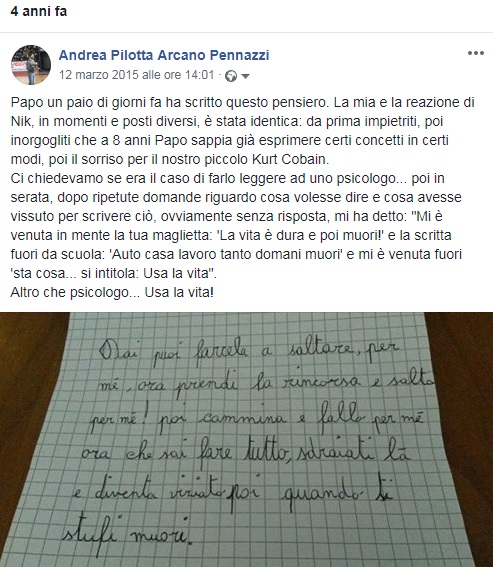 4 anni fa
Andrea Pilotta Arcano Pennazzi
12 marzo 2015 alle ore 14:01 ·
Papo un paio di giorni fa ha scritto questo pensiero. La mia e la reazione di
Nik, in momenti e posti diversi, è stata identica: da prima impietriti, poi
inorgogliti che a 8 anni Papo sappia già esprimere certi concetti in certi
modi, poi il sorriso per il nostro piccolo Kurt Cobain.
Ci chiedevamo se era il caso di farlo leggere ad uno psicologo... poi in
serata, dopo ripetute domande riguardo cosa volesse dire e cosa avesse
vissuto per scrivere ciò, ovviamente senza risposta, mi ha detto: "Mi è
venuta in mente la tua maglietta: 'La vita è dura e poi muori!' e la scritta
fuori da scuola: 'Auto casa lavoro tanto domani muori' e mi è venuta fuori
'sta cosa... si intitola: Usa la vita".
Altro che psicologo... Usa la vita!
Dai puoi farcela a saltare, per
mé, ora prendi la rincorsa e salta
per mé! poi cammina e fallo per mé
ora che sai fare tutto, sdraiati lá
e diventa viziato poi quando ti
stufi muori.